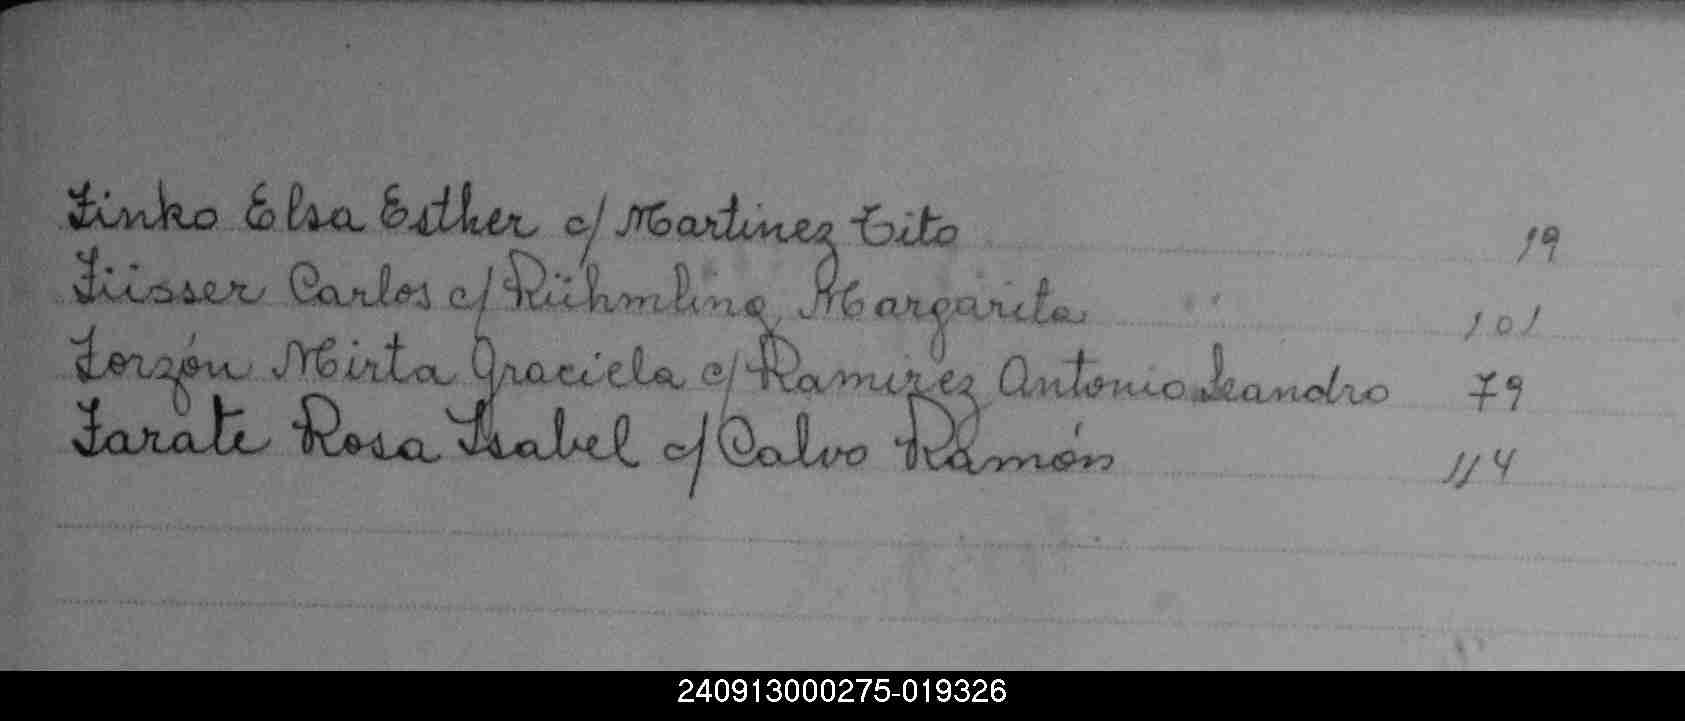 Zinko Elsa Esther c/ Martinez Tito 19
Züsser Carlos c/ Rühmling Margarita 101
Zorzón Mirta Graciela c/ Ramirez Antonio Leandro 79
Zarate Rosa Isabel c/ Calvo Ramón 114
240913000275-019326